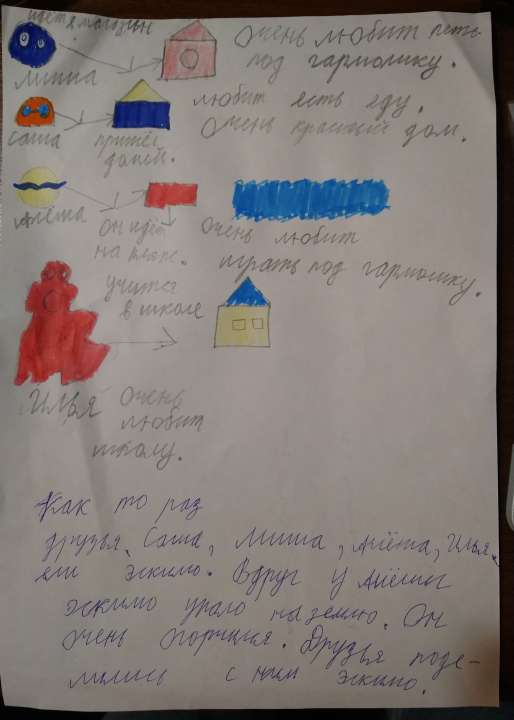 идёт в магазин
Миша
Очень любит петь
под гармошку.
Саша
пришёл
домой.
любит есть еду.
Очень красивый дом.
Алёша
Он идёт
на пляж.
Очень любит
играть под гармошку.
учится
в школе
Илья
Очень
любит
школу.
Как то раз
друзья, Саша, Миша, Алёша, Илья
ели эскимо. Вдруг у Алёши
эскимо упало на землю. Он
очень огорчился. Друзья поде-
лились с ним эскимо.